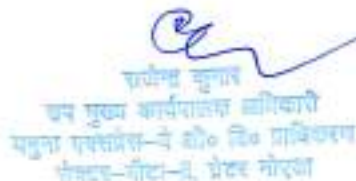 राजेन्द्र कुमार
उप मुख्य कार्यपालक अधिकारी
यमुना एक्सप्रेस-वे औ० वि० प्राधिकरण
सेक्टर-बीटा-2, ग्रेटर नोएडा